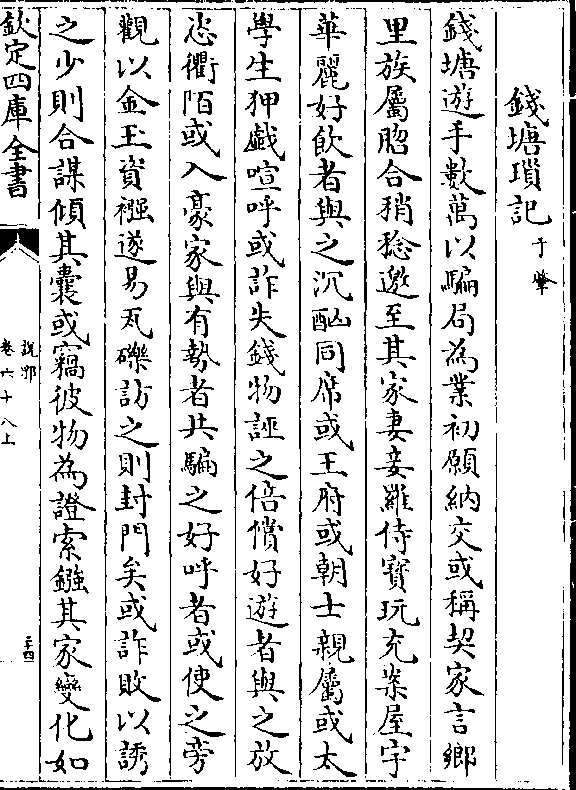 錢塘瑣記于肇
錢塘遊手數萬以騙局為業初願納交或稱契家言鄉
里族屬脗合稍稔邀至其家妻妾羅侍寶玩充案屋宇
華麗好飲者與之沉酗同席或王府或朝士親屬或太
學生狎戲喧呼或詐失錢物誣之倍償好遊者與之放
恣衢陌或入豪家與有勢者共騙之好呼者或使之旁
觀以金玉資襁遂易瓦礫訪之則封門矣或詐敗以誘
之少則合謀傾其囊或竊彼物為證索鏹其家變化如
欽定四庫全書
說郛
卷六十八上
三十四